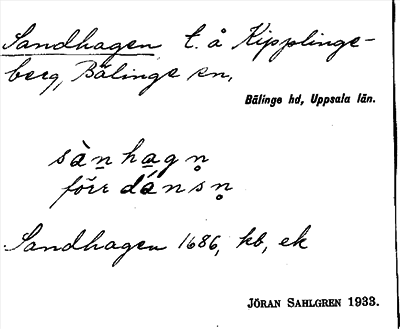 Sandhagen t. å Kipplinge-
berg, Bälinge sn,
Bälinge hd, Uppsala län.
sàṉha̱gn̥
förr dá̱nsn̥
Sandhagen 1686, kb, ek
JÖRAN SAHLGREN 1933.